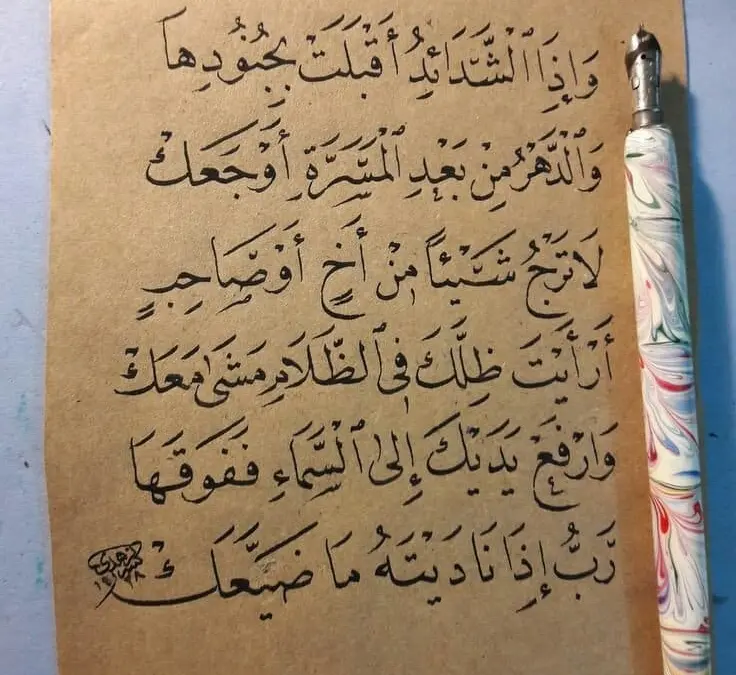 وَإِذَا ٱلشَّدَائِدُ أَقْبَلَتْ بِجُنُودِهَا
وَٱلْدَّهْرُ مِنْ بَعْدِ ٱلْمَسَرَّةِ أَوْجَعَكْ
لَا تَرْجُ شَيْئًا مِنْ أَخٍ أَوْ صَاحِبٍ
أَرَأَيْتَ ظِلَّكَ فِي ٱلظَّلَامِ مَشَىٰ مَعَكْ
وَارْفَعْ يَدَيْكَ إِلَى ٱلسَّمَاءِ فَفَوْقَهَا
رَبُّ إِذَا نَادَيْتَهُ مَا ضَيَّعَكْ